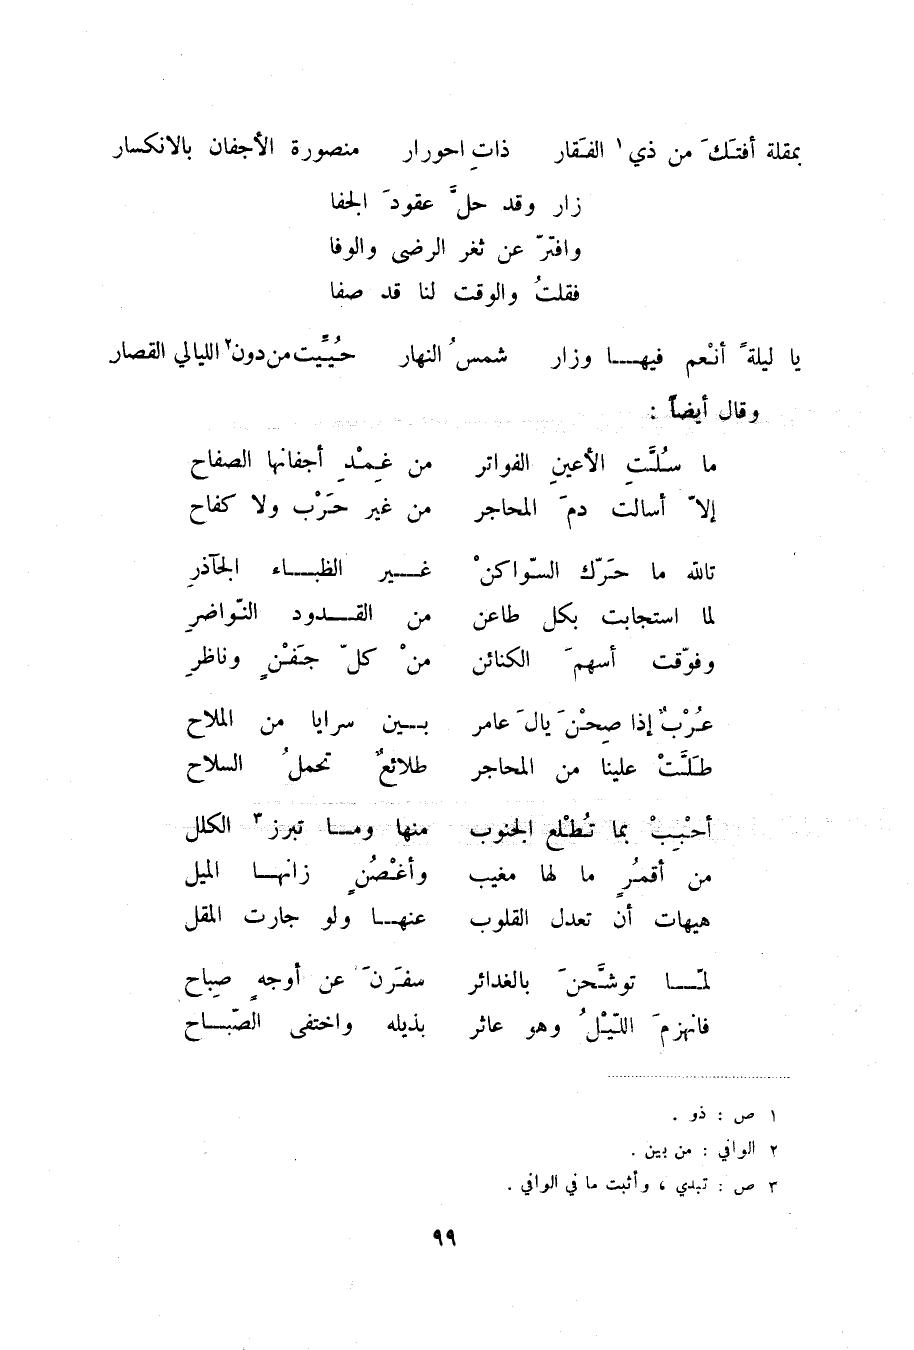 بمقلة أفتَكَ من ذي ١ الفَقار ذاتِ احورار منصورة الأجفان بالانكسار
زار وقد حلَّ عقودَ الجفا
وافترّ عن ثغر الرضى والوفا
فقلتُ والوقت لنا قد صفا
يا ليلةً أنْعم فيهــا وزار شمسُ النهار حُيِّيت من دون٢ الليالي القصار
وقال أيضاً :
ما سُلَّتِ الأعينِ الفواتر من غِمْدِ أجفانها الصفاح
إلاّ أسالت دمَ المحاجر من غير حَرْب ولا كفاح
تالله ما حَرّك السّواكنْ غــير الظبــاء الجآذرِ
لما استجابت بكل طاعن من القــدود النّواضرِ
وفوّقت أسهمَ الكنائن منْ كلّ جَفْنٍ وناظرِ
عُرْبٌ إذا صِحْنَ يالَ عامر بــين سرايا من الملاح
طَلَّتْ علينا من المحاجر طلائعٌ تحملُ السلاح
أحْبِبْ بما تُطْلع الجنوب منها ومــا تبرز ٣ الكلل
من أقمُرٍ ما لها مغيب وأغْصُنٍ زانهــا الميل
هيهات أن تعدل القلوب عنهــا ولو جارت المقل
لمّــا توشَّحنَ بالغدائر سفَرنَ عن أوجهٍ صِباح
فانهزمَ اللّيْلُ وهو عاثر بذيله واختفى الصّبــاح
١ ص : ذو .
٢ الوافي : من بين .
٣ ص : تبدي ، وأثبت ما في الوافي .
٩٩